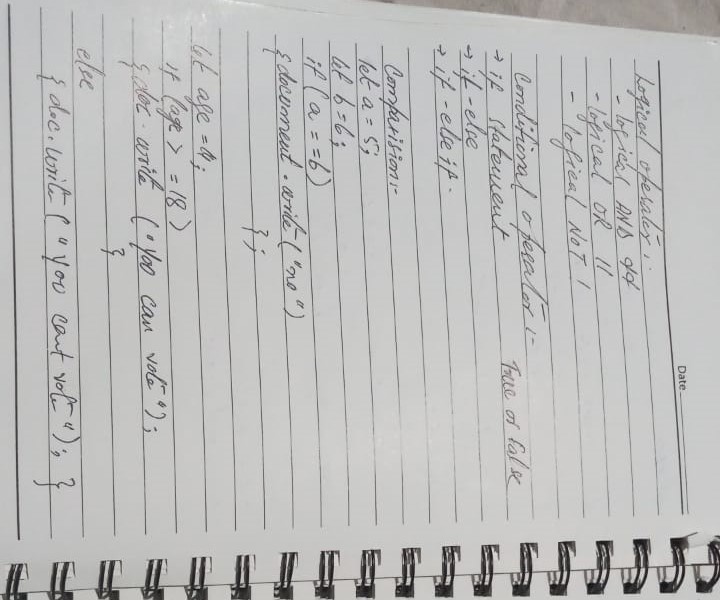 Date
Logical operator:-
- logical AND &&
- logical OR ||
- logical NOT !
Conditional operator :-
True or false
→ if statement
→ if-else
→ if-else if.
Comparision:-
let a = 5;
let b = 6;
if (a == b)
{ document.write ("no")
};
let age = 4;
if (age > = 18)
{ doc.write ("you can vote");
}
else
{ doc.write ("you cant vote"); }